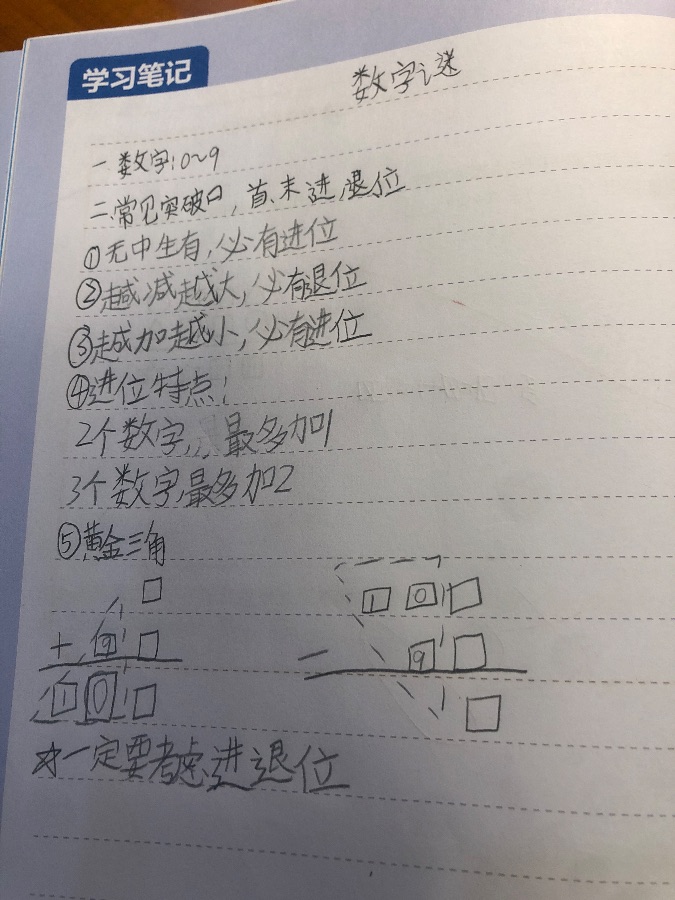 学习笔记
数字谜
一 数字:0~9
二.常见突破口,首、末、进、退位
①无中生有,必有进位
②越减越大,必有退位
③越加越小,必有进位
④进位特点:
2个数字,最多加1
3个数字,最多加2
⑤黄金三角
1 0
+ 9
- 9
1 0
☆一定要考虑进退位